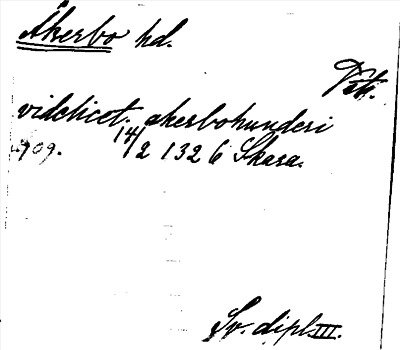 Åkerbo hd.
Vstr.
videlicet. akerbohunderi
s. 709. 14/2 1326 Skara.
Sv. dipl. III.